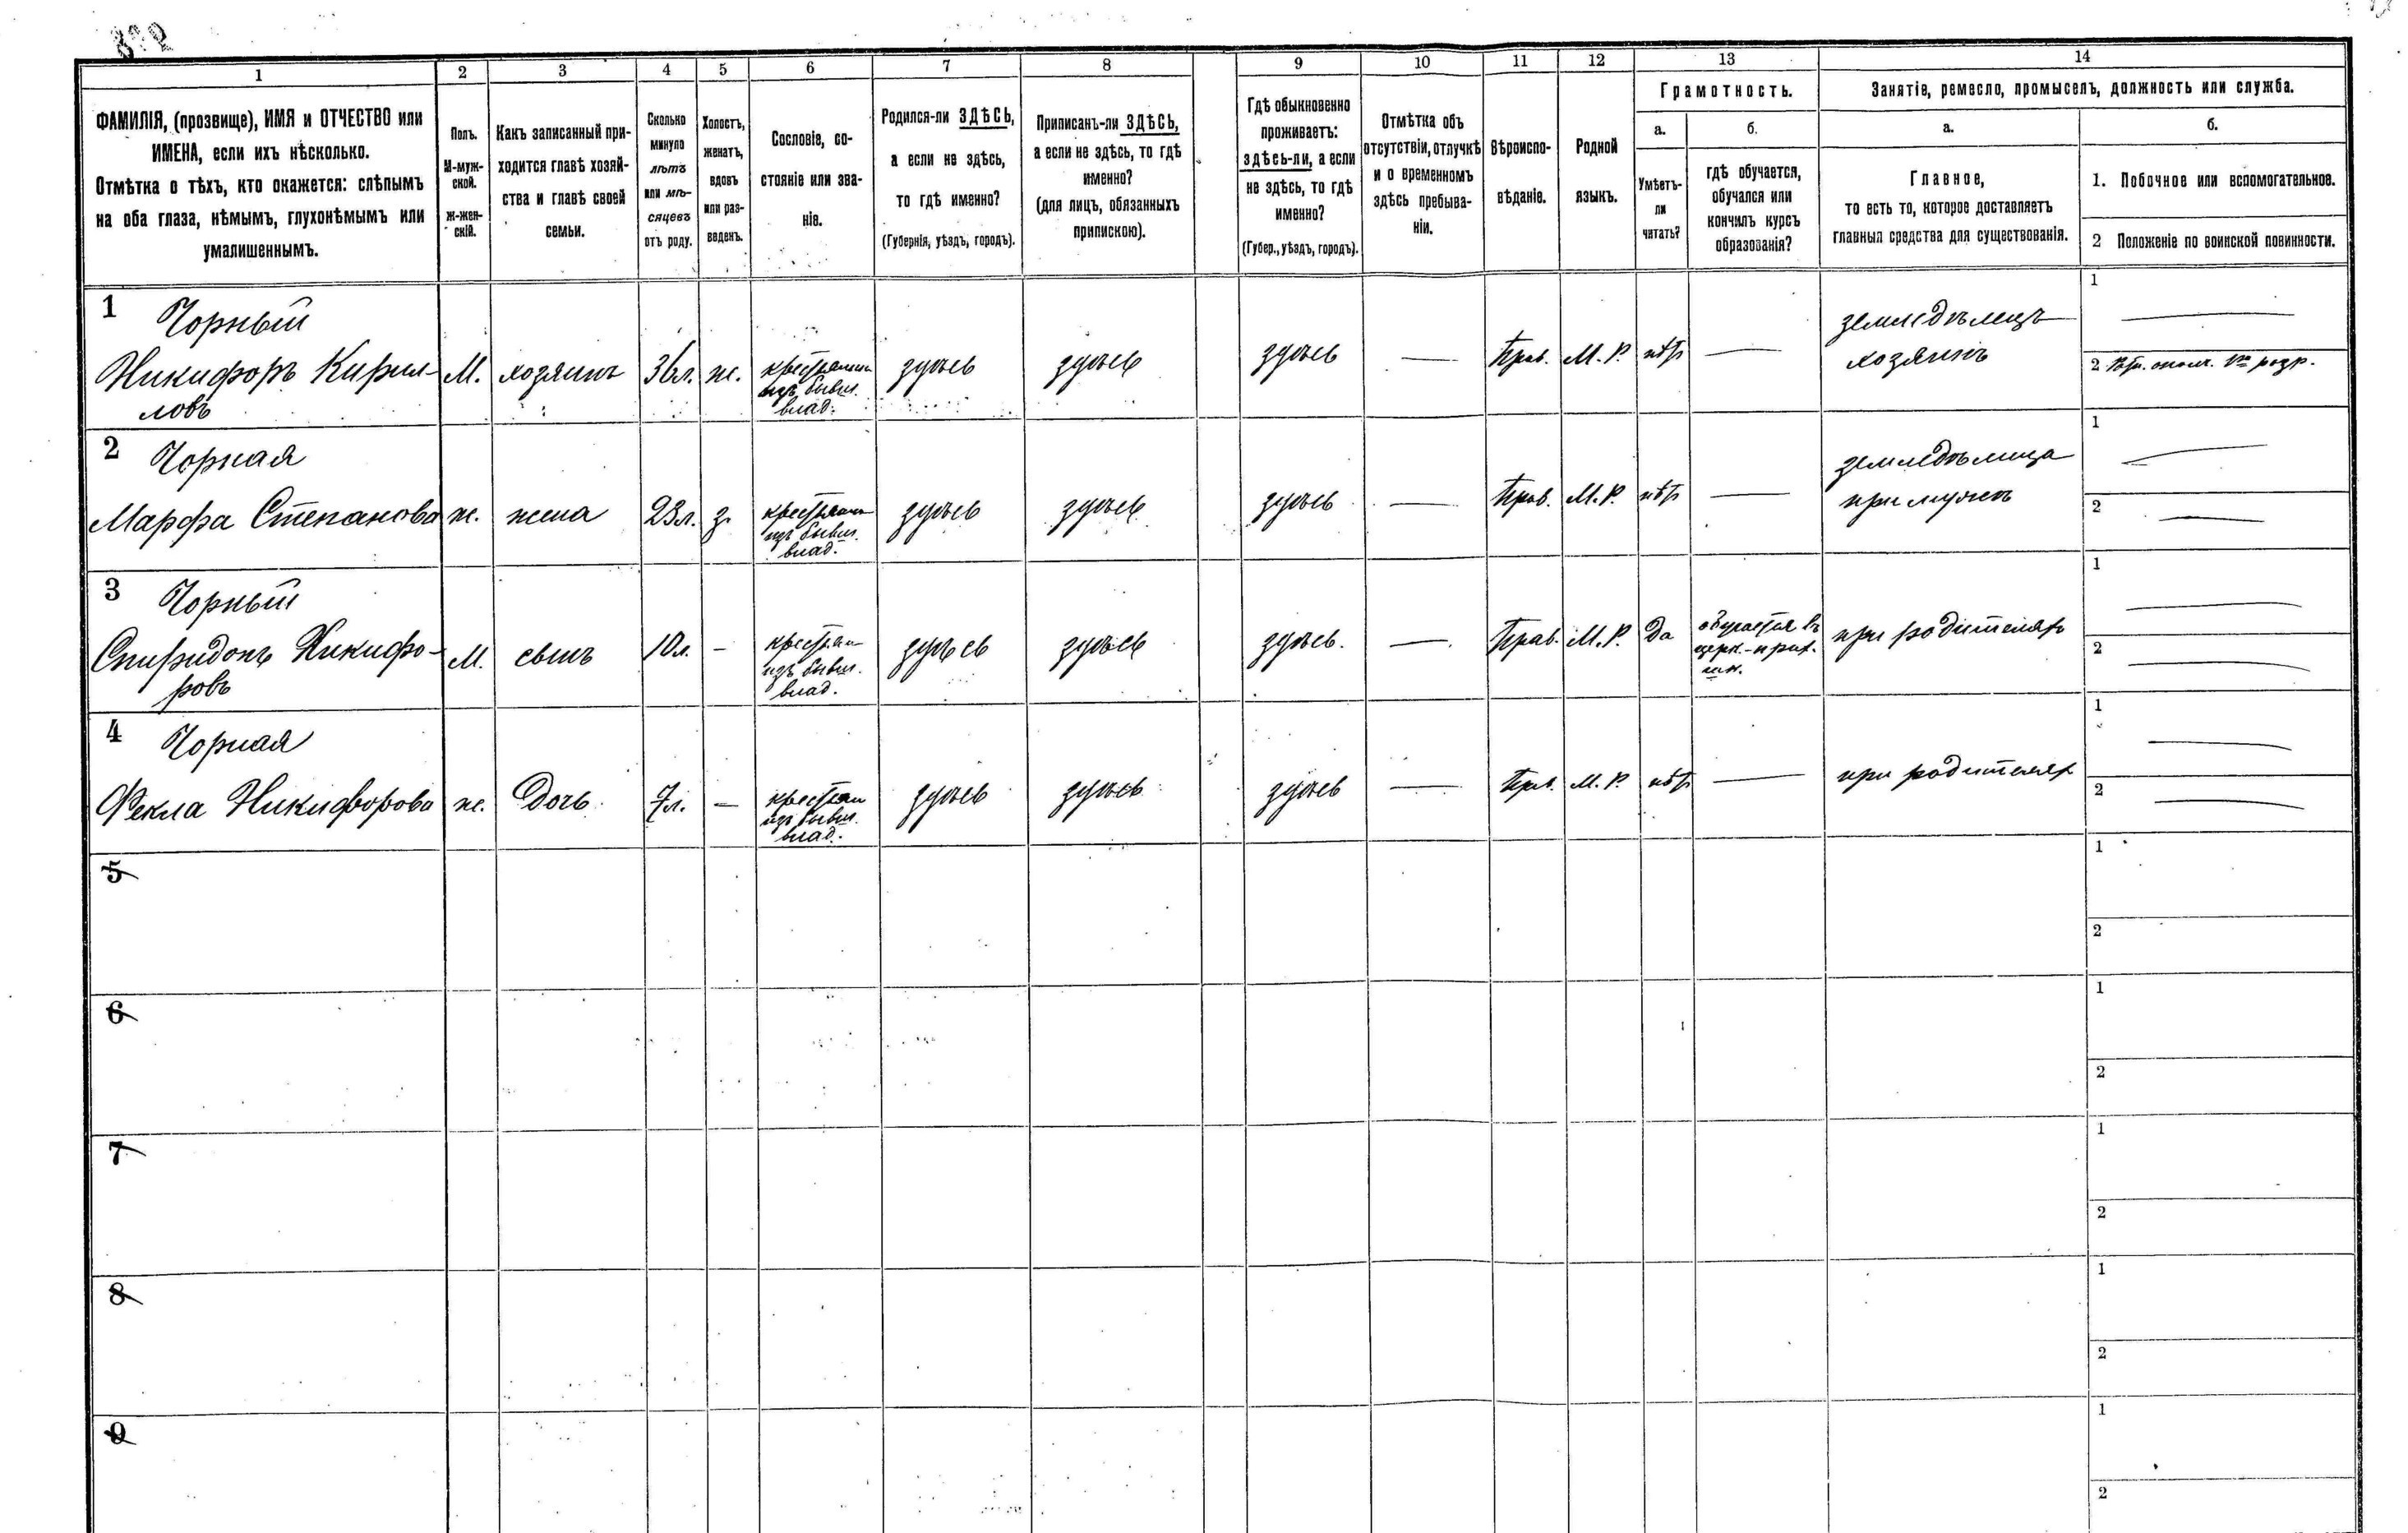 1 2 3 4 5 6 7 8 9 10 11 12 13 14
ФАМИЛІЯ, (прозвище), ИМЯ и ОТЧЕСТВО или
ИМЕНА, если ихъ нѣсколько.
Отмѣтка о тѣхъ, кто окажется: слѣпымъ
на оба глаза, нѣмымъ, глухонѣмымъ или
умалишеннымъ.
Полъ.
М-муж-
ской.
ж-жен-
скій.
Какъ записанный при-
ходится главѣ хозяй-
ства и главѣ своей
семьи.
Сколько
минуло
лѣтъ
или мѣ-
сяцевъ
отъ роду.
Холостъ,
женатъ,
вдовъ
или раз-
веденъ.
Сословіе, со-
стояніе или зва-
ніе.
Родился-ли ЗДѢСЬ,
а если не здѣсь,
то гдѣ именно?
(Губернія, уѣздъ, городъ).
Приписанъ-ли ЗДѢСЬ,
а если не здѣсь, то гдѣ
именно?
(для лицъ, обязанныхъ
припискою).
Гдѣ обыкновенно
проживаетъ:
здѣсь-ли, а если
не здѣсь, то гдѣ
именно?
(Губер., уѣздъ, городъ).
Отмѣтка объ
отсутствіи, отлучкѣ
и о временномъ
здѣсь пребыва-
ніи.
Вѣроиспо-
вѣданіе.
Родной
языкъ.
Грамотность.
а.
Умѣетъ-
ли
читать?
б.
гдѣ обучается,
обучался или
кончилъ курсъ
образованія?
Занятіе, ремесло, промыселъ, должность или служба.
а.
Главное,
то есть то, которое доставляетъ
главныя средства для существованія.
б.
1. Побочное или вспомогательное.
2 Положеніе по воинской повинности.
1 Чорный
Никифоръ Кирил-
ловъ
М.
хозяинъ
36 л.
ж.
крестьянин
изъ бывш.
влад.
здѣсь
здѣсь
здѣсь
—
Прав.
М. Р.
нѣт
—
земледѣлецъ
хозяинъ
1 —
2 опол. разр.
2 Чорная
Марфа Степанова
ж.
жена
23 л.
з.
крестьян
изъ бывш.
влад.
здѣсь
здѣсь
здѣсь
—
Прав.
М. Р.
нѣт
—
земледѣлица
при мужѣ
1 —
2 —
3 Чорный
Спиридонъ Никифо-
ровъ
М.
сынъ
10 л.
—
крестьян
изъ бывш.
влад.
здѣсь
здѣсь
здѣсь.
—
Прав.
М. Р.
Да
обучается въ
церк.-прих.
шк.
при родителях
1 —
2 —
4 Чорная
Фекла Никифорова
ж.
Дочь
7 л.
—
крестьян
изъ бывш.
влад.
здѣсь
здѣсь
здѣсь
—
Прв.
М. Р.
нѣт
—
при родителях
1 —
2 —
5
1
2
6
1
2
7
1
2
8
1
2
9
1
2